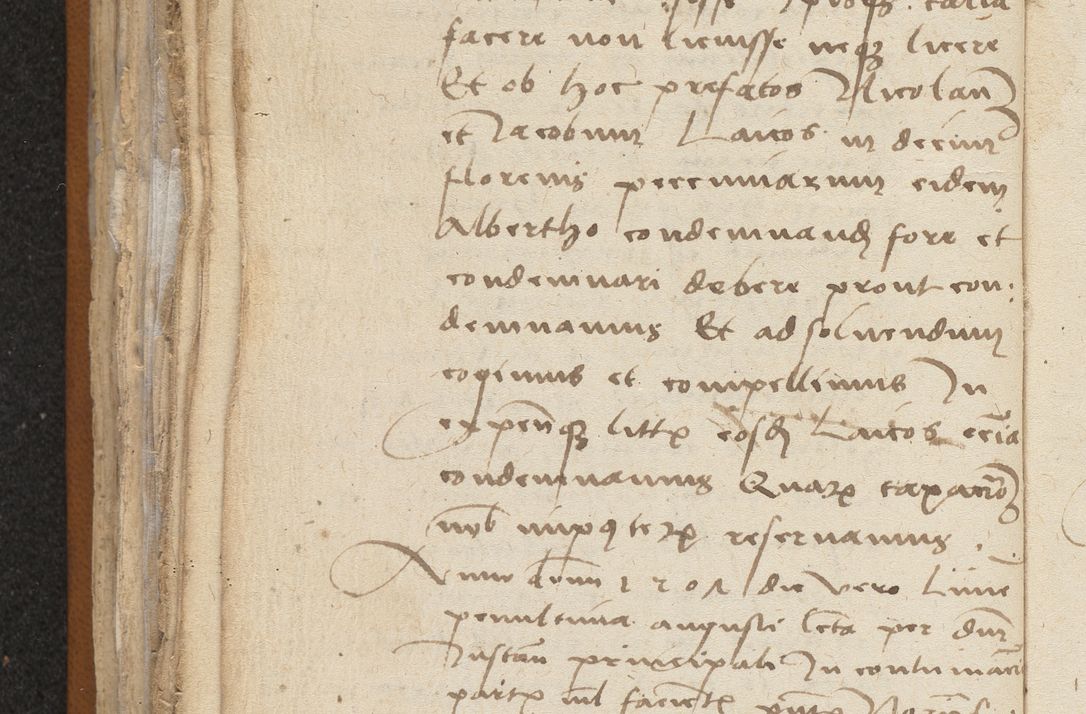 facere non licuisse neqz licere
Et ob hoc prefatos Nicolaum
et Jacobum Laicos in decim
florenis peccuniarum eidem
Albertho condemnand fore et
condemnari debere prout con
demnamus Et ad soluendum
cogimus et compellimus In
expensqz litt eosd Laicos eciã
condemnamus Quar taxacioẽ
nob imp9ter reseruamus
Anno dnm 1501 die vero Lune
penultima augusti lcta per dnm
Justan principali In contumaci
part nl facient